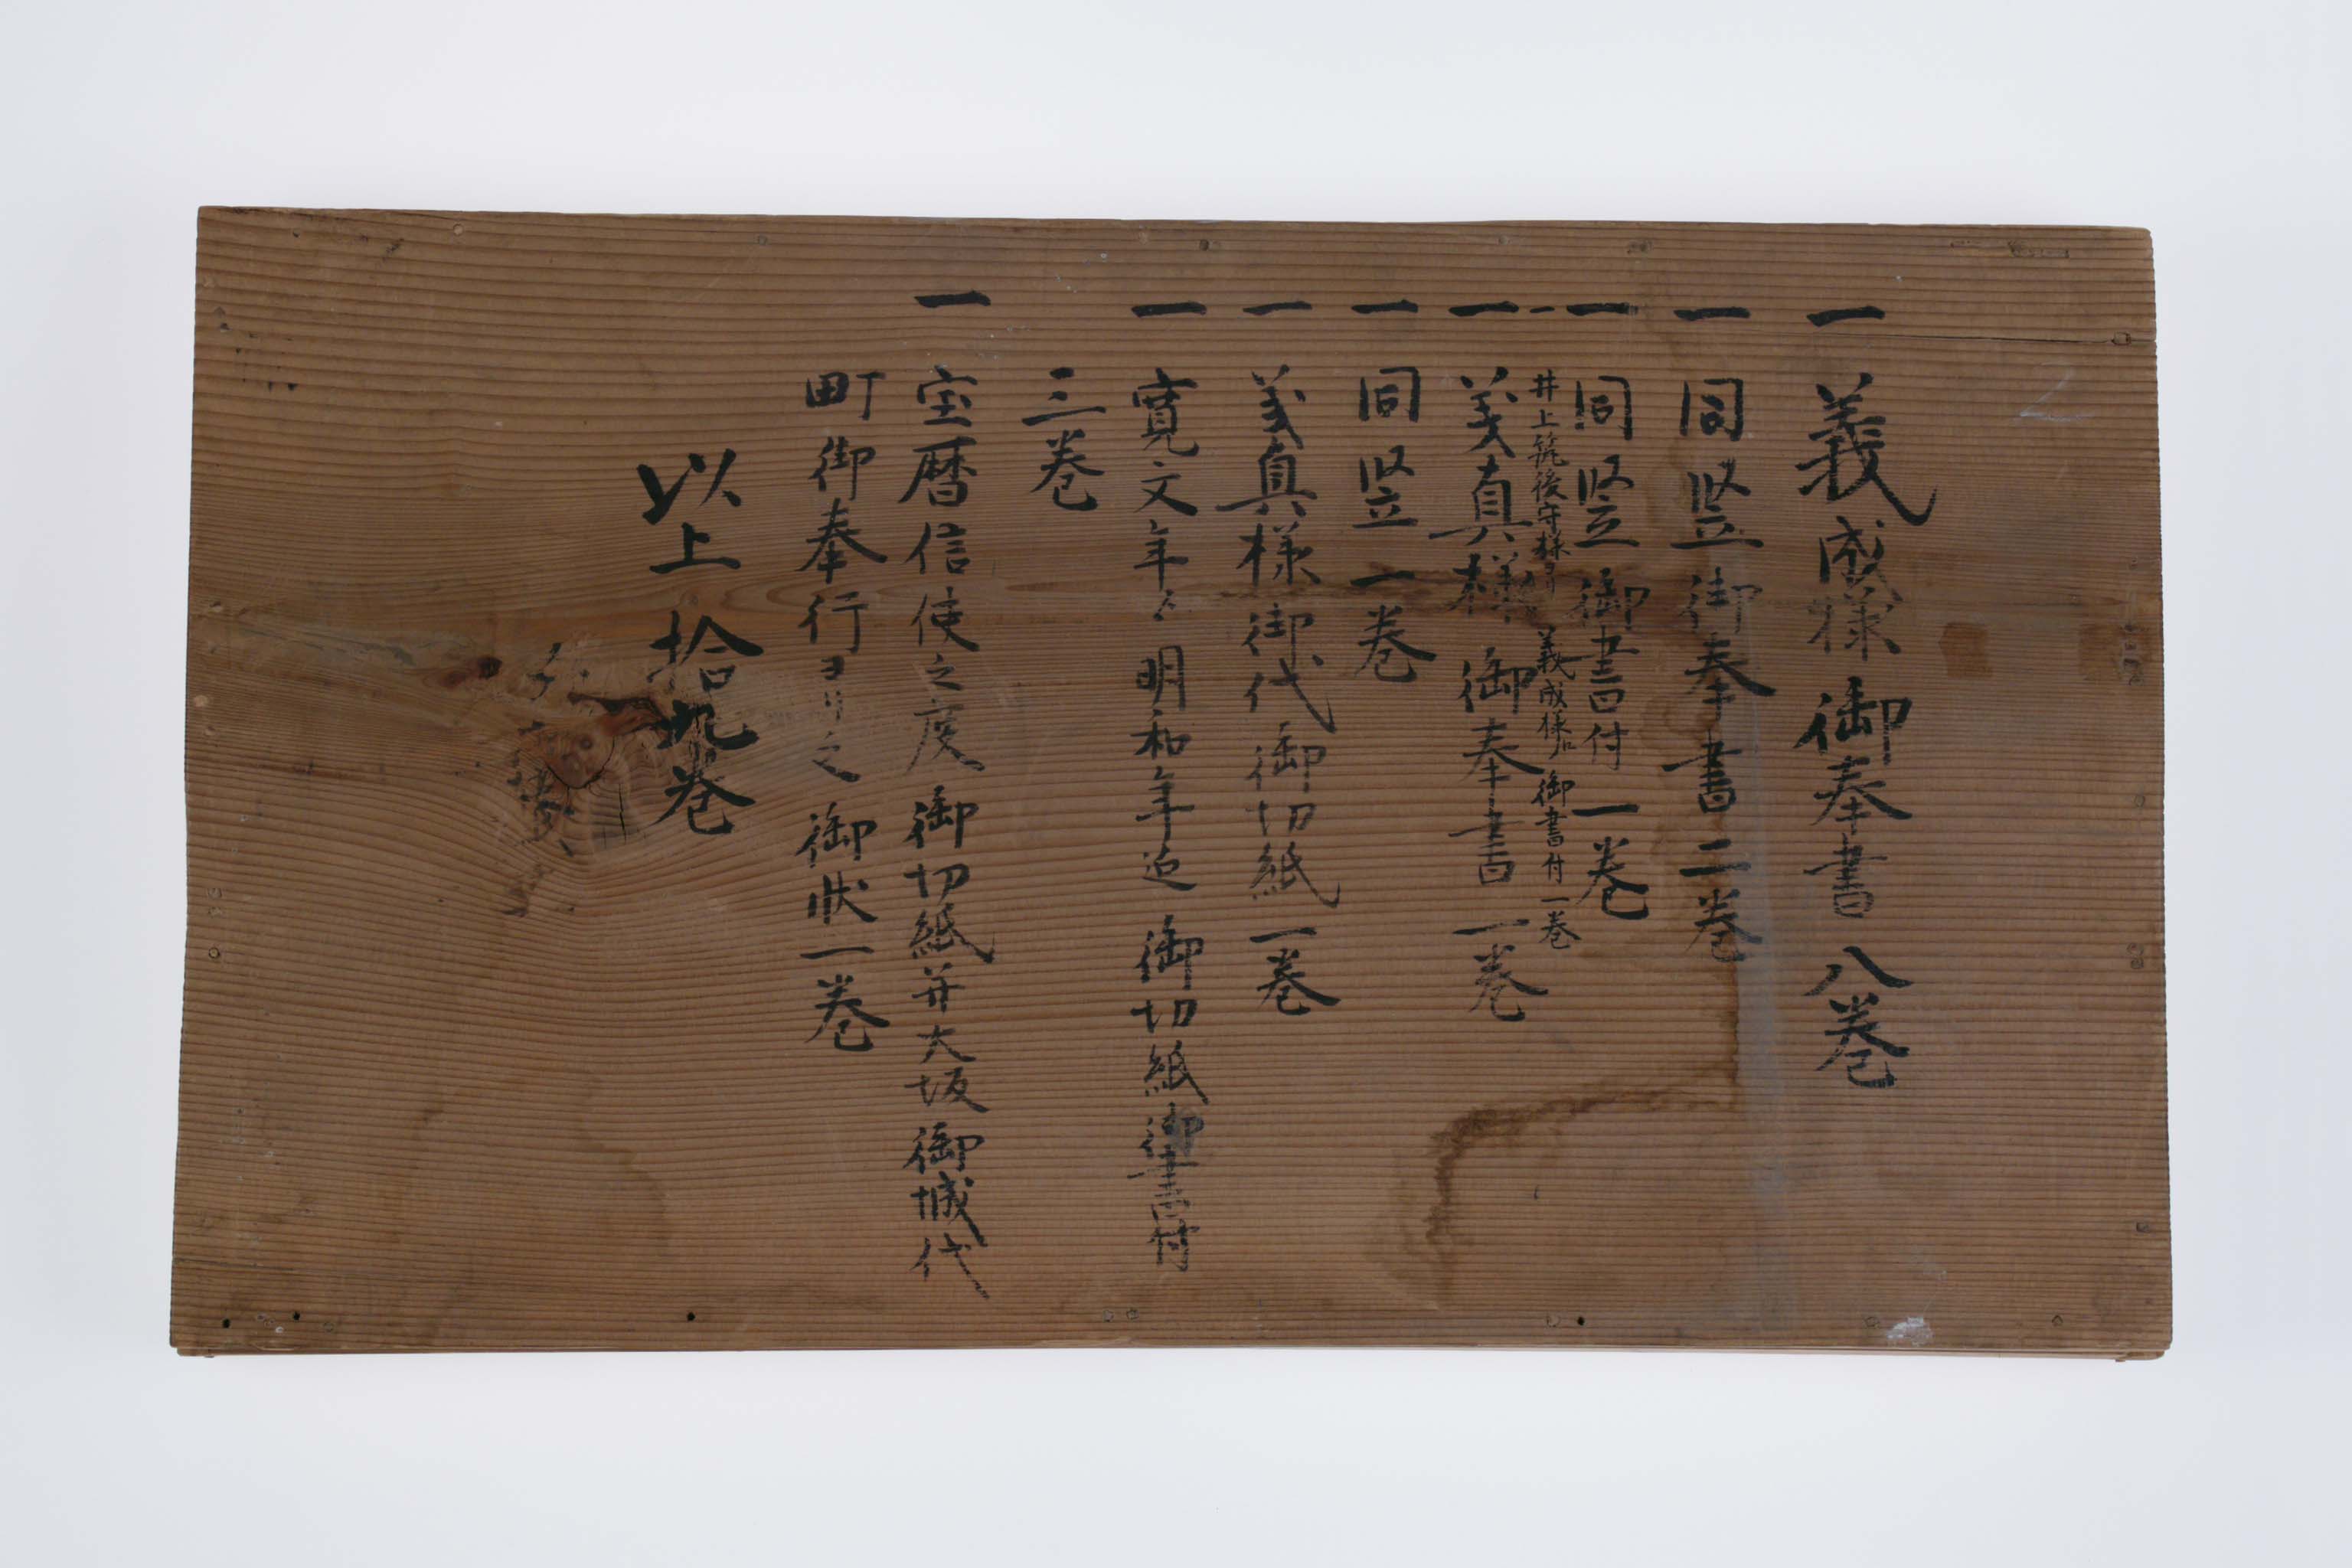 一 義成様御奉書八巻
一 同竪御奉書二巻
一 同竪御書付一巻
一 井上筑後守様ヨリ義成様江御書付一巻
一 義真様御奉書一巻
一 同竪一巻
一 義真様御代御切紙一巻
一 寛文年ゟ明和年迄御切紙御書付
三巻
一 宝暦信使之度御切紙并大坂御城代
町御奉行ヨリ之御状一巻
以上拾九巻